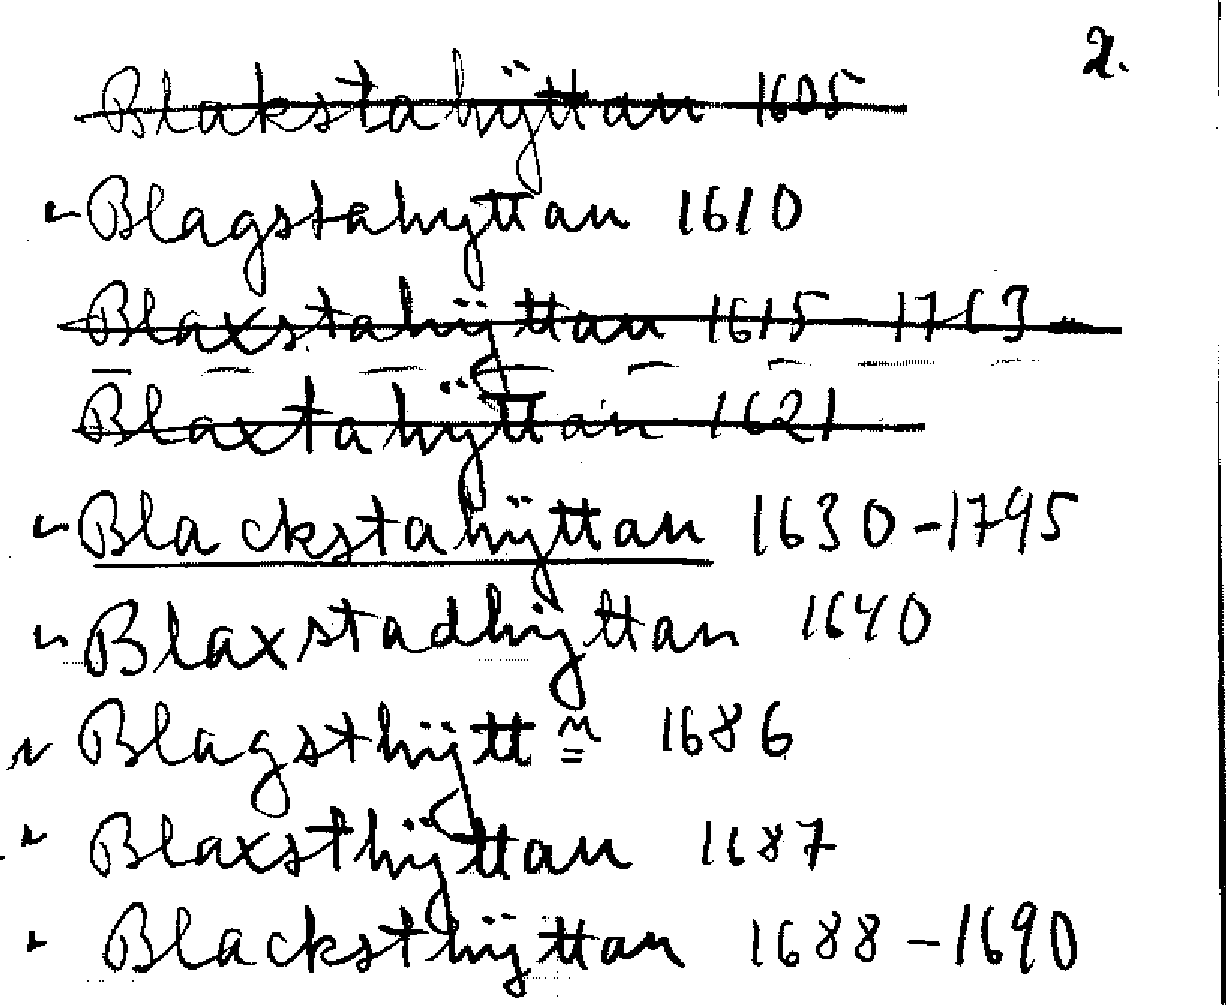 2.
Blakstahÿttan 1605
Blagstahyttan 1610
Blaxstahÿttan 1615-1763
Blaxtahÿttan 1621
Blackstahÿttan 1630-1795
Blaxstadhÿttan 1640
Blagsthÿtt= 1686
Blaxsthÿttan 1687
Blacksthÿttan 1688-1690